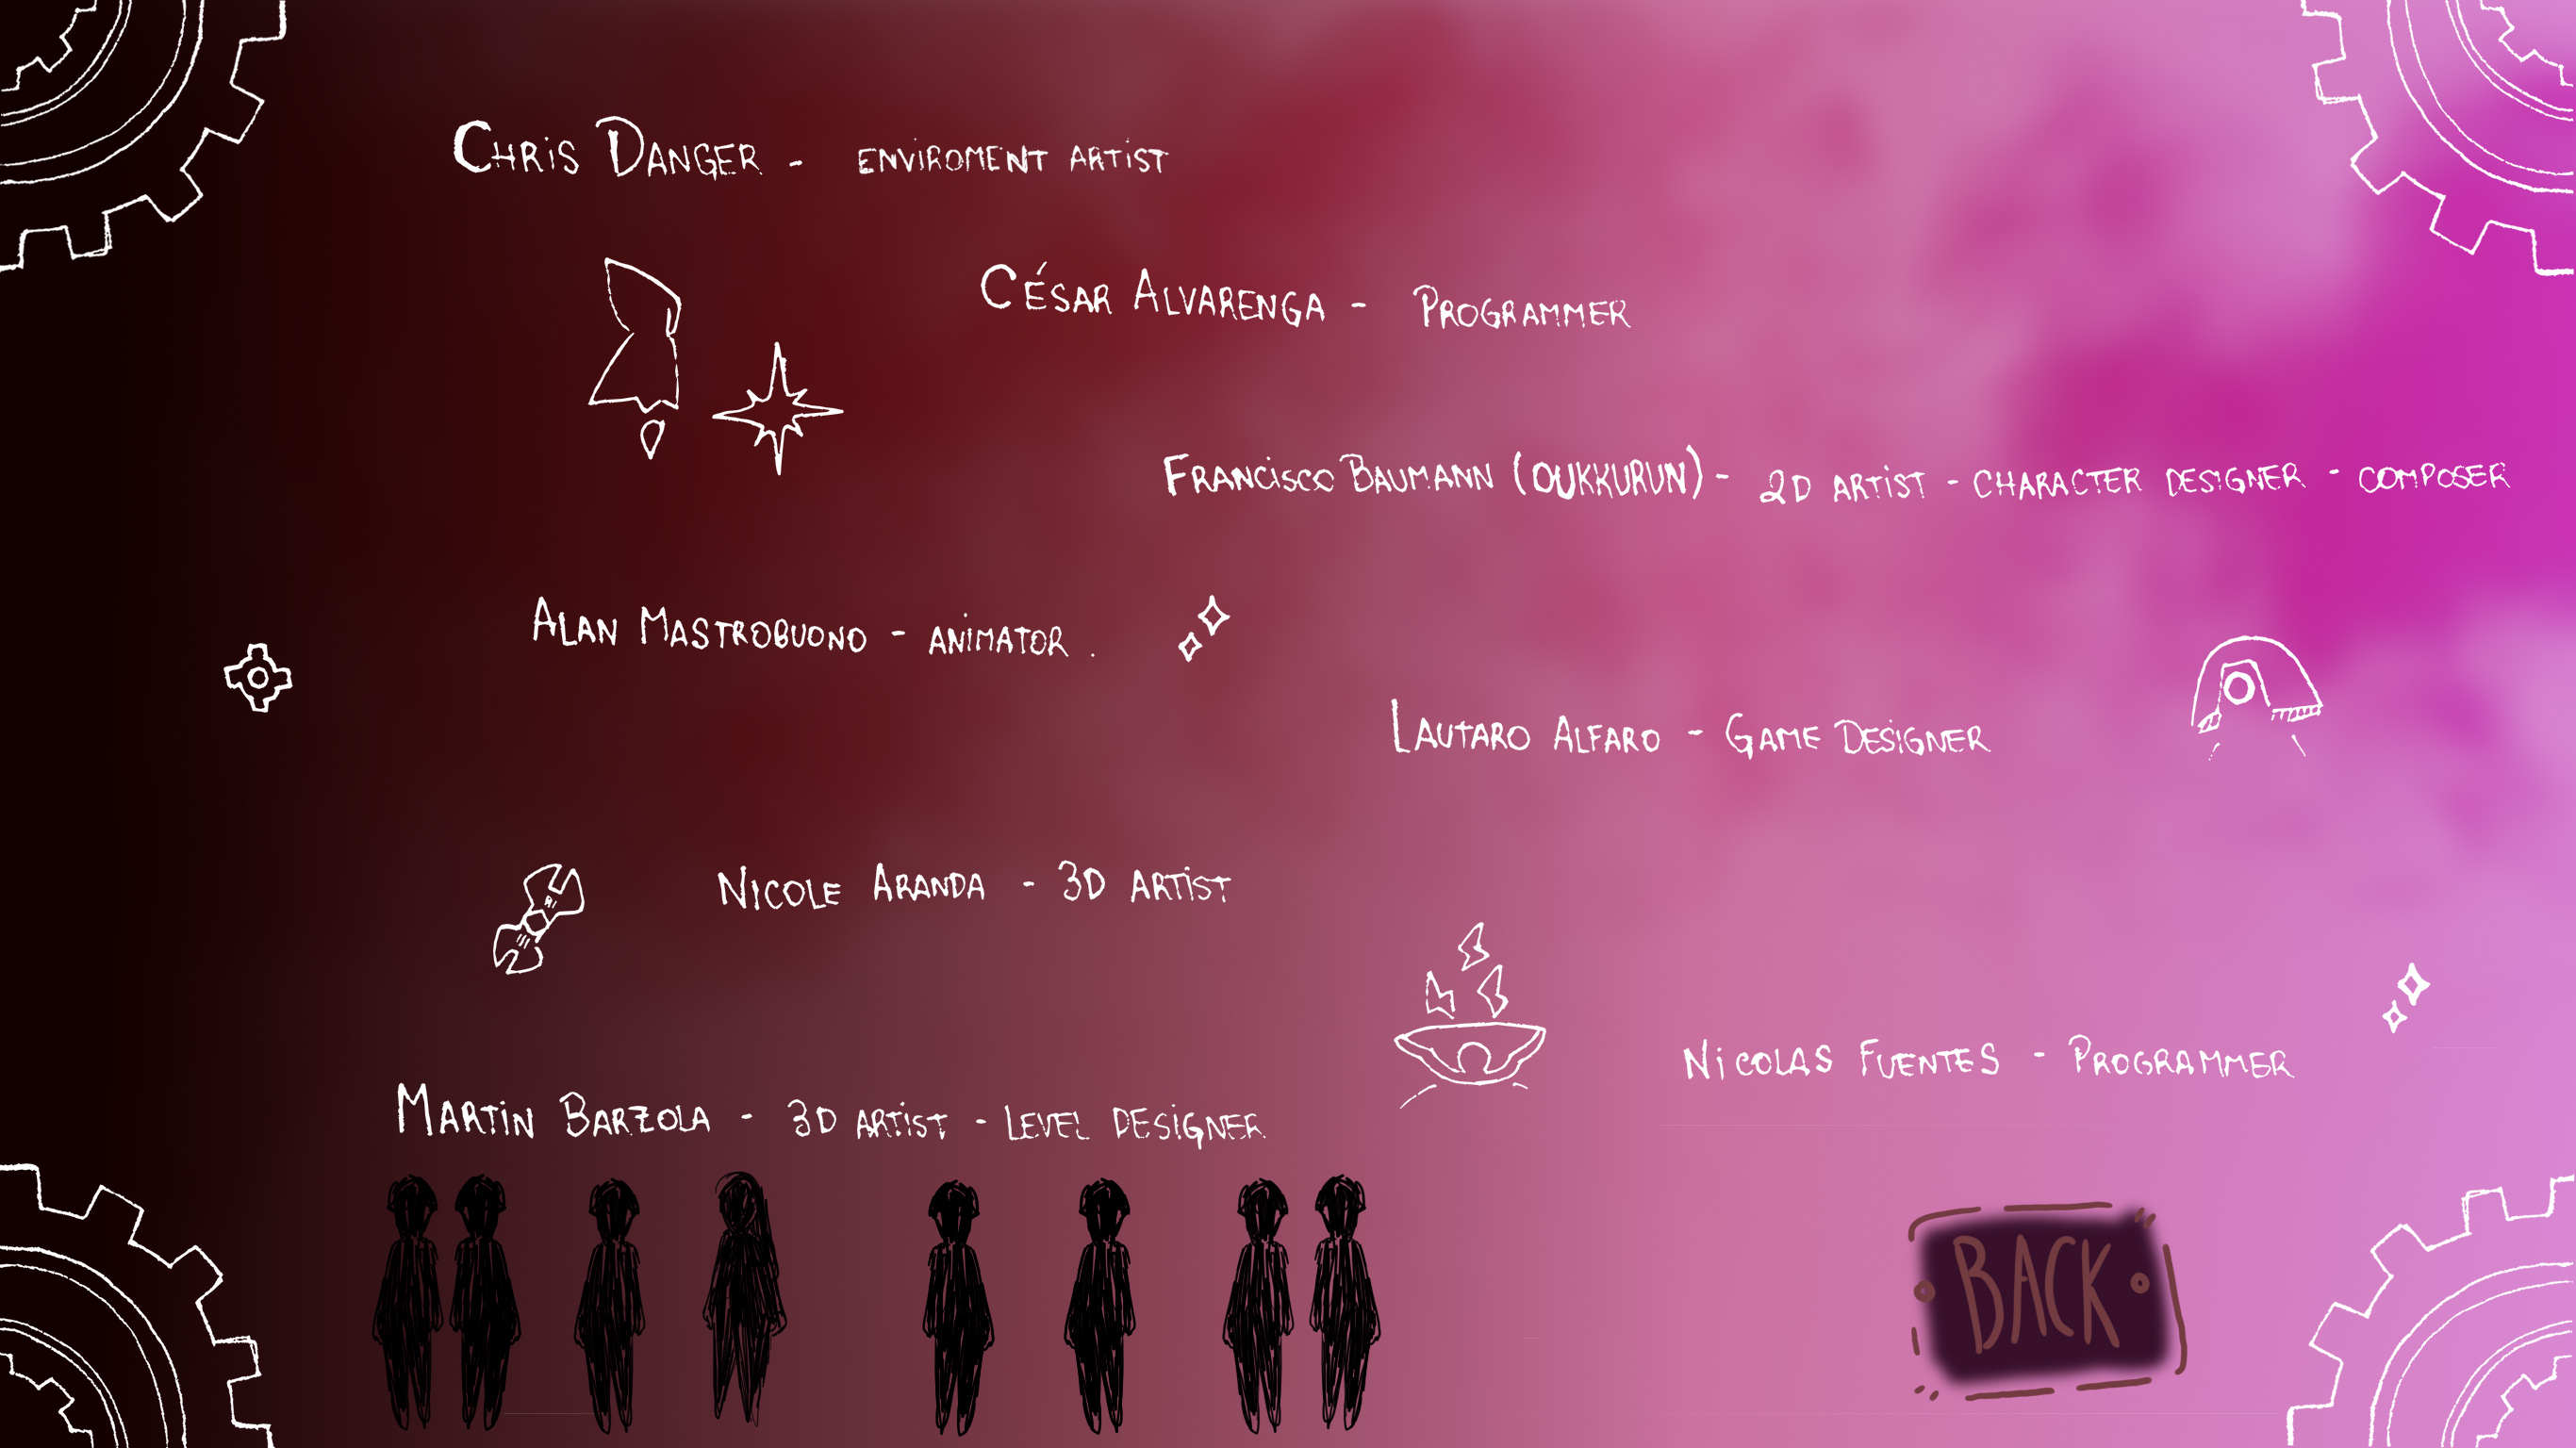 CHRiS DANGER - ENViROMENT ARTiST
CÉSAR ALVARENGA - PROGRAMMER
FRANCiSCO BAUMANN (OUKKURUN) - 2D ARTiST - CHARACTER DESiGNER - COMPOSER
ALAN MASTROBUONO - ANiMATOR .
LAUTARO ALFARO - GAME DESiGNER
NICOLE ARANDA - 3D ARTiST
NiCOLAS FUENTES - PROGRAMMER
MARTiN BARZOLA - 3D ARTiST - LEVEL DESiGNER
BACK